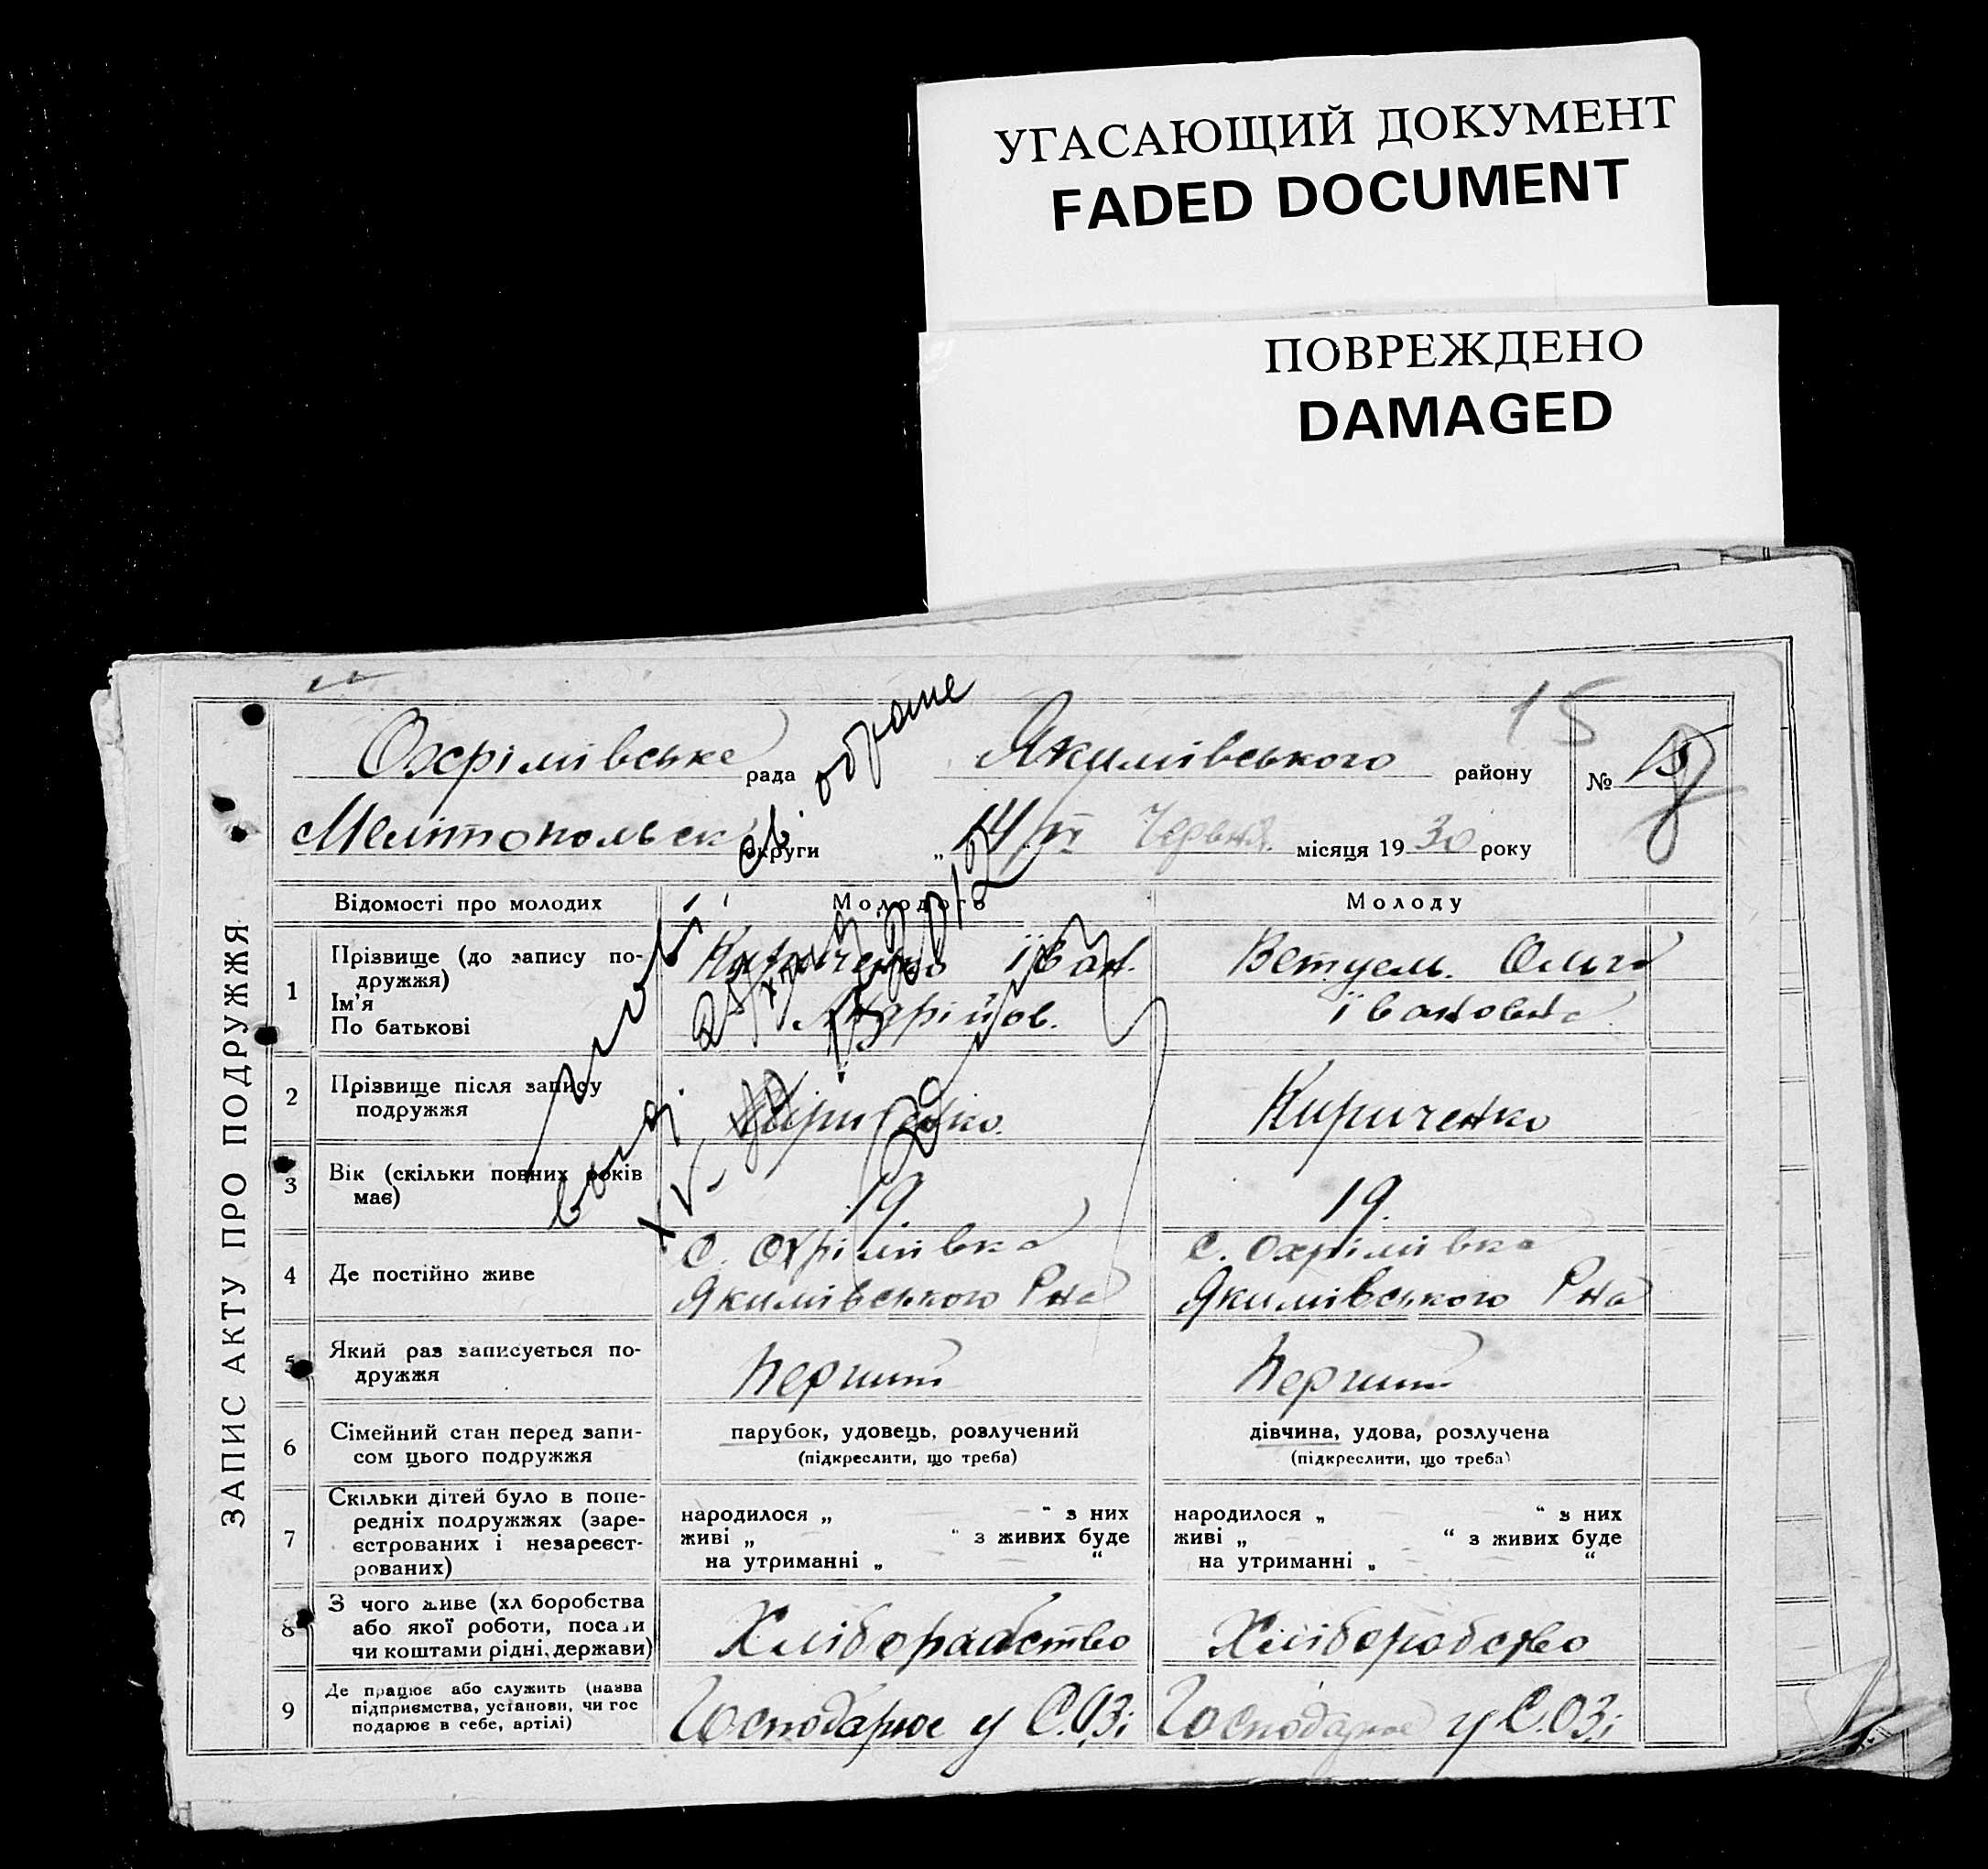 УГАСАЮЩИЙ ДОКУМЕНТ
FADED DOCUMENT
ПОВРЕЖДЕНО
DAMAGED
ЗАПИС АКТУ ПРО ПОДРУЖЖЯ
15
Охрімівське рада Якимівського району № 15
8
Мелітопольськ округи „ 14/VI Червня місяця 1930 року
Відомості про молодих Молодого Молоду
1 Прізвище (до запису по-
дружжя)
Ім'я
По батькові
Кириченко Іван
Андрійов.
Ветцель. Ольга
Івановна
2 Прізвище після запису
подружжя
Кириченко
Кириченко
3 Вік (скільки повних років
має)
19
19.
4 Де постійно живе
с. Охрімівка
Якимівського Рна
с. Охрімівка
Якимівського Рна
5 Який раз записується по-
дружжя
Перший
Перший
6 Сімейний стан перед запи-
сом цього подружжя
парубок, удовець, розлучений
(підкреслити, що треба)
дівчина, удова, розлучена
(підкреслити, що треба)
7 Скільки дітей було в попе-
редніх подружжях (заре-
єстрованих і незареєст-
рованих)
народилося „ “ з них
живі „ “ з живих буде
на утриманні „ “
народилося „ “ з них
живі „ “ з живих буде
на утриманні „ “
8 З чого живе (хл боробства
або якої роботи, посади
чи коштами рідні, держави)
Хліборобство
Хліборобство
9 Де працює або служить (назва
підприємства, установи, чи гос
подарює в себе, артілі)
Господарює у С.ОЗі
Господарює у С.ОЗі